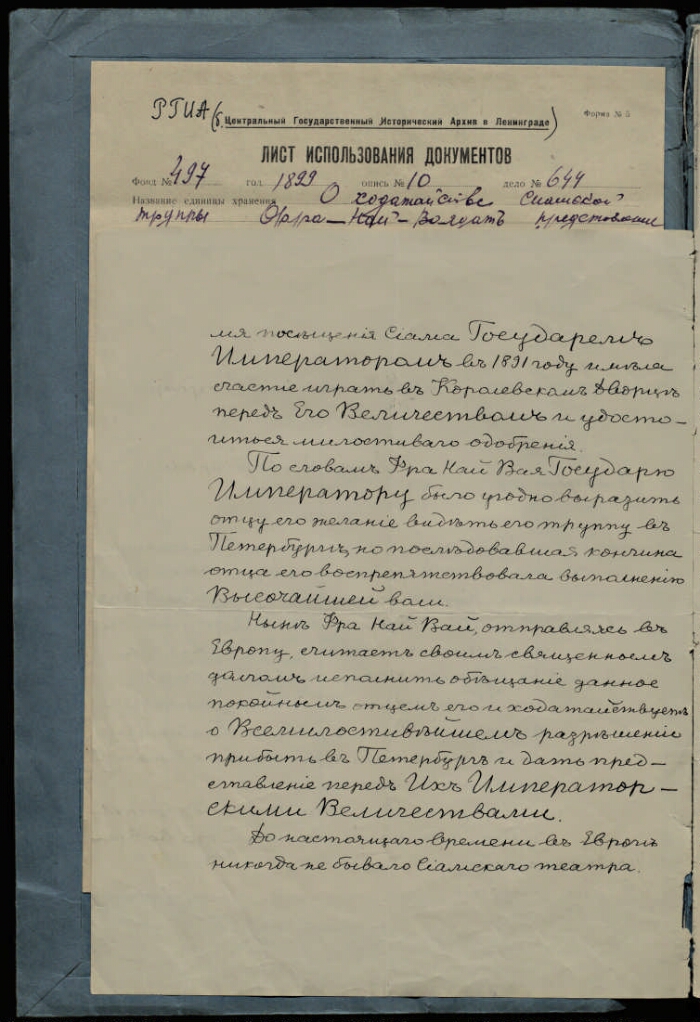 РГИА (б. Центральный Государственный Исторический Архив в Ленинграде)
Форма № 5
ЛИСТ ИСПОЛЬЗОВАНИЯ ДОКУМЕНТОВ
Фонд № 497 год 1899 опись № 10 дело № 644
Название единицы хранения О ходатайстве Сиамской
труппы Фра-Най-Вая дать представление
мя посѣщенія Сіама Государемъ
Императоромъ въ 1891 году имѣла
счастіе играть въ Королевскомъ Дворцѣ
передъ Его Величествомъ и удосто-
иться милостиваго одобренія.
По словамъ Фра Най Вая Государю
Императору было угодно выразить
отцу его желаніе видѣть его труппу въ
Петербургѣ, но послѣдовавшая кончина
отца его воспрепятствовала выполненію
Высочайшей воли.
Нынѣ Фра Най Вай, отправляясь въ
Европу, считаетъ своимъ священнымъ
долгомъ исполнить обѣщаніе данное
покойнымъ отцемъ его и ходатайствуетъ
о Всемилостивѣйшемъ разрѣшеніи
прибыть въ Петербургъ и дать пред-
ставленіе передъ Ихъ Император-
скими Величествами.
До настоящаго времени въ Европѣ
никогда не бывало Сіамскаго театра.